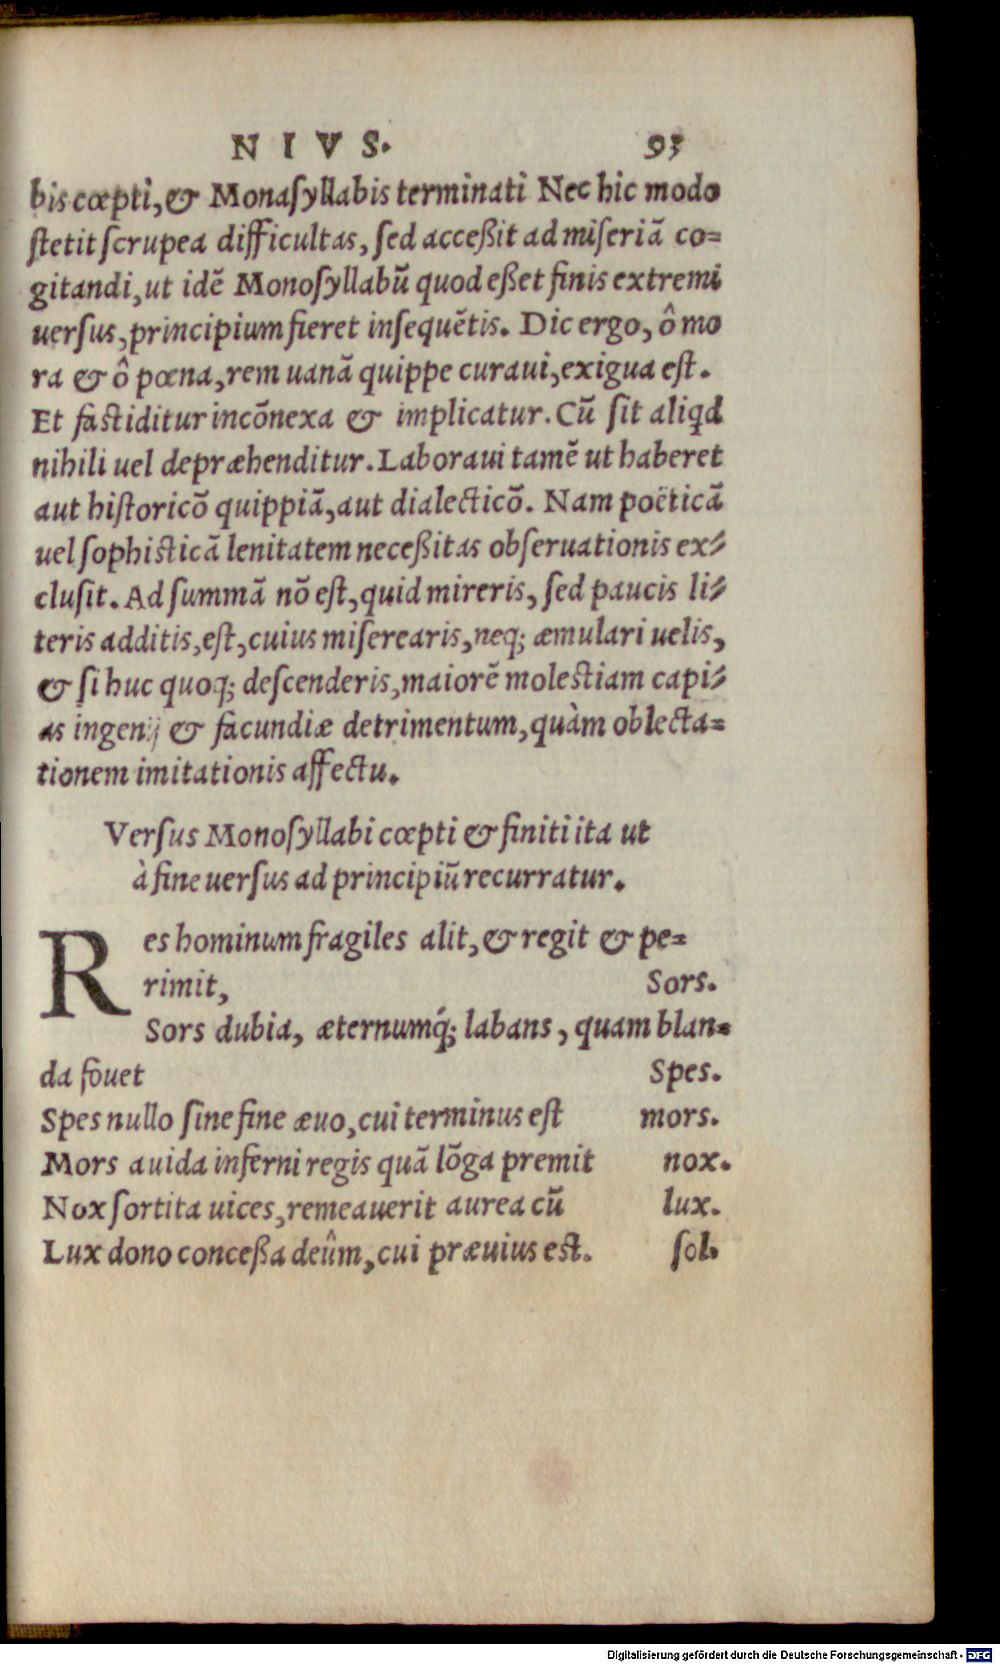 NIVS. 93
bis cœpti, & Monasyllabis terminati Nec hic modo
ſtetit ſcrupea difficultas, ſed acceßit ad miſeriã co=
gitandi, ut idẽ Monoſyllabũ quod eßet finis extremi
uerſus, principium fieret inſequẽtis. Dic ergo, ô mo
ra & ô pœna, rem uanã quippe curaui, exigua eſt.
Et faſtiditur incõnexa & implicatur. Cũ ſit aliqd
nihili uel depræhenditur. Laboraui tamẽ ut haberet
aut hiſtoricõ quippiã, aut dialecticõ. Nam poëticã
uel ſophiſticã lenitatem neceßitas obſeruationis ex=
cluſit. Ad ſummã nõ eſt, quid mireris, ſed paucis li=
teris additis, eſt, cuius miſerearis, neq; æmulari uelis,
& ſi huc quoq; deſcenderis, maiorẽ moleſtiam capi=
as ingenij & facundiæ detrimentum, quàm oblecta=
tionem imitationis affectu.
Verſus Monoſyllabi cœpti & finiti ita ut
à fine uerſus ad principiũ recurratur.
Res hominum fragiles alit, & regit & pe=
rimit, Sors.
Sors dubia, æternumq́; labans, quam blan=
da fouet Spes.
Spes nullo ſine fine æuo, cui terminus eſt mors.
Mors auida inferni regis quã lõga premit nox.
Nox ſortita uices, remeauerit aurea cũ lux.
Lux dono conceßa deûm, cui præuius eſt. ſol.
Digitalisierung gefördert durch die Deutsche Forschungsgemeinschaft - DFG